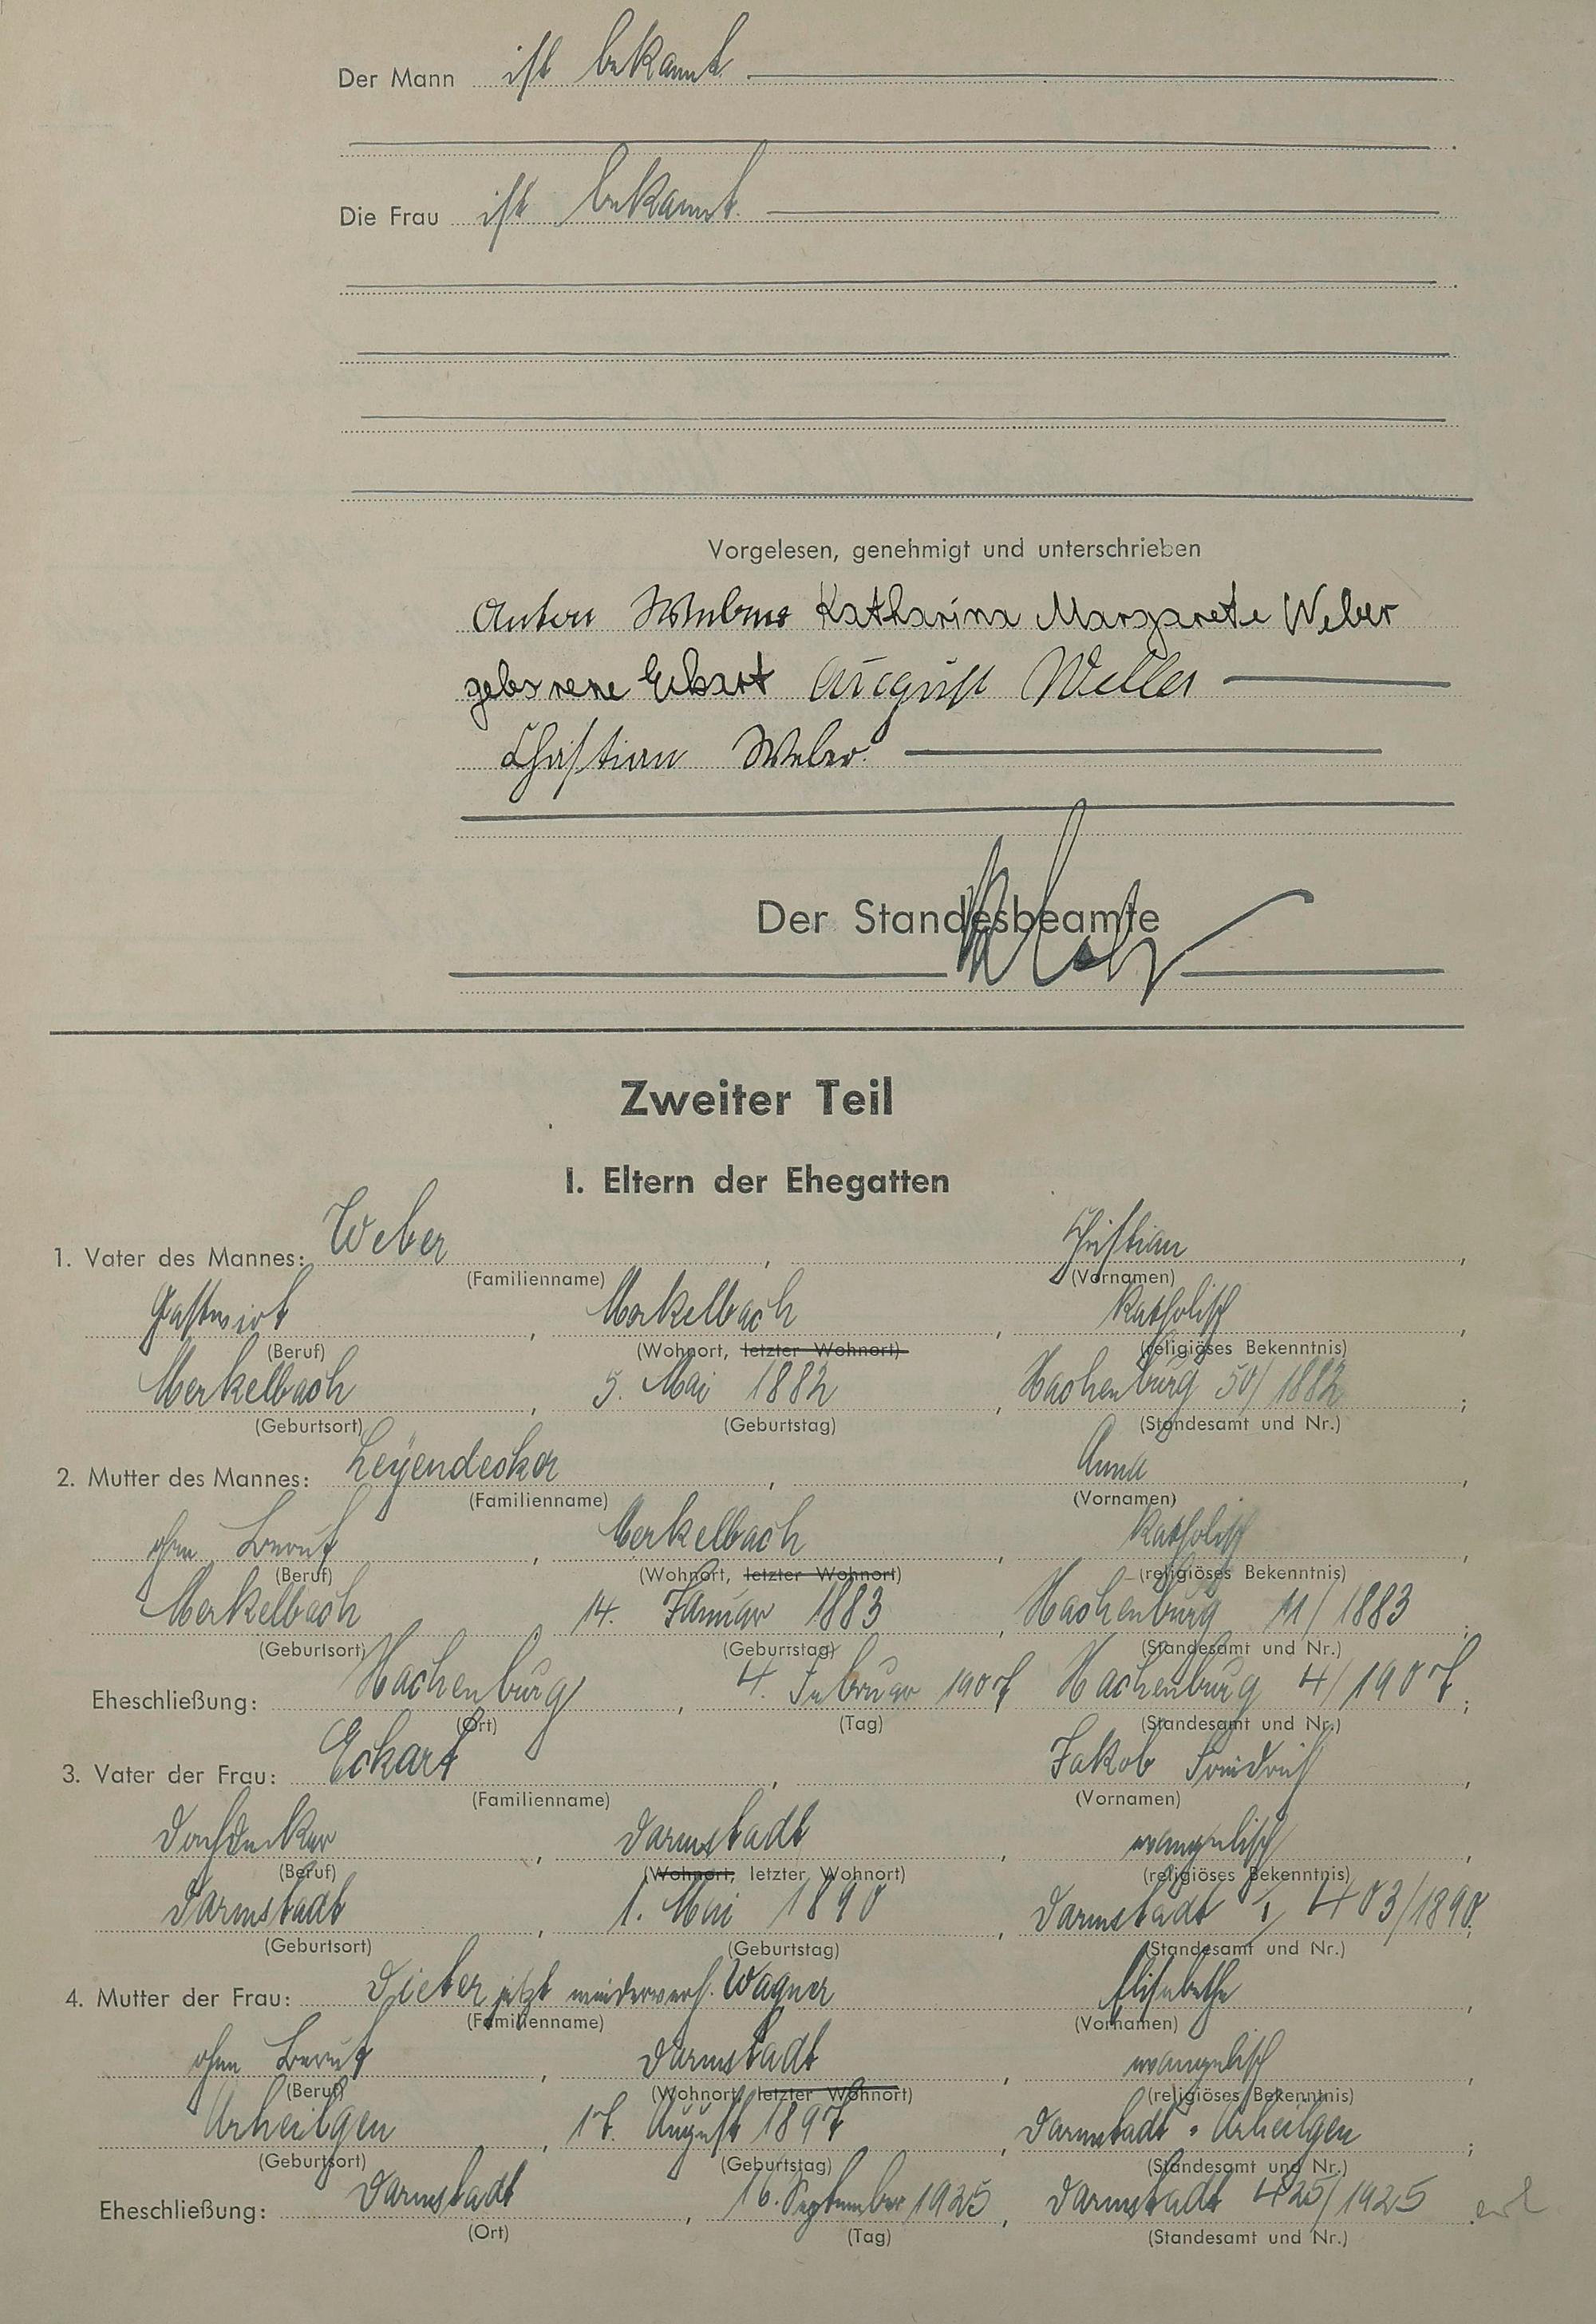 Der Mann ist bekannt.
Die Frau ist bekannt.
Vorgelesen, genehmigt und unterschrieben
Anton Weber Katharina Margarete Weber
geborene Eckart August Weller
Christian Weber.
Der Standesbeamte
Zweiter Teil
I. Eltern der Ehegatten
1. Vater des Mannes: Weber, Christian,
(Familienname) (Vornamen)
Gastwirt, Merkelbach, katholisch,
(Beruf) (Wohnort, letzter Wohnort) (religiöses Bekenntnis)
Merkelbach, 5. Mai 1882, Hachenburg 50/1882;
(Geburtsort) (Geburtstag) (Standesamt und Nr.)
2. Mutter des Mannes: Leÿendecker, Anna,
(Familienname) (Vornamen)
ohne Beruf, Merkelbach, katholisch,
(Beruf) (Wohnort, letzter Wohnort) (religiöses Bekenntnis)
Merkelbach, 14. Januar 1883, Hachenburg 11/1883;
(Geburtsort) (Geburtstag) (Standesamt und Nr.)
Eheschließung: Hachenburg, 4. Februar 1907 Hachenburg 4/1907;
(Ort) (Tag) (Standesamt und Nr.)
3. Vater der Frau: Eckart, Jakob Friedrich,
(Familienname) (Vornamen)
Dachdecker, Darmstadt, evangelisch,
(Beruf) (Wohnort, letzter Wohnort) (religiöses Bekenntnis)
Darmstadt, 1. Mai 1890, Darmstadt I, 403/1890;
(Geburtsort) (Geburtstag) (Standesamt und Nr.)
4. Mutter der Frau: Dieter jetzt wiederverh. Wagner Elisabethe,
(Familienname) (Vornamen)
ohne Beruf, Darmstadt, evangelisch,
(Beruf) (Wohnort, letzter Wohnort) (religiöses Bekenntnis)
Arheilgen, 17. August 1897, Darmstadt-Arheilgen;
(Geburtsort) (Geburtstag) (Standesamt und Nr.)
Eheschließung: Darmstadt, 16. September 1925, Darmstadt 425/1925.
(Ort) (Tag) (Standesamt und Nr.)